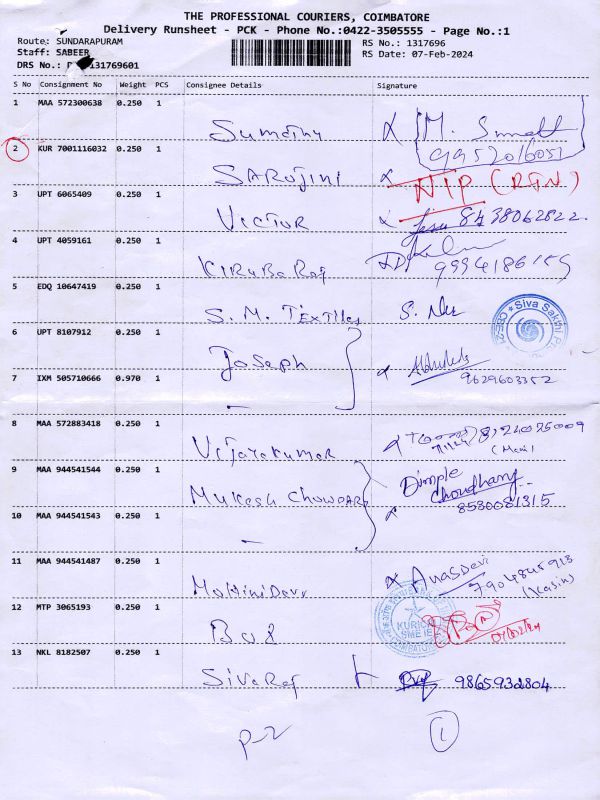 THE PROFESSIONAL COURIERS, COIMBATORE
Delivery Runsheet - PCK - Phone No.:0422-3505555 - Page No.:1
Route: SUNDARAPURAM
RS No.: 1317696
Staff: SABEER
RS Date: 07-Feb-2024
DRS No.: 131769601
S No Consignment No Weight PCS Consignee Details Signature
1 MAA 572300638 0.250 1
Sumathy
9952016051
2 KUR 7001116032 0.250 1
SAROJINI NIP (RTN)
3 UPT 6065409 0.250 1
VICTOR 8438062822
4 UPT 4059161 0.250 1
KIRUBa Raj 9994186155
5 EDQ 10647419 0.250 1
S. M. TExTILes S.
Siva Sakthi
6 UPT 8107912 0.250 1
Joseph
7 IXM 505710666 0.970 1
9629603352
8 MAA 572883418 0.250 1
Vijayakumar
9 MAA 944541544 0.250 1
MUKESH CHOWDARY Dimple Choudhary
8530081315
10 MAA 944541543 0.250 1
11 MAA 944541487 0.250 1
Mohini Devi
12 MTP 3065193 0.250 1
13 NKL 8182507 0.250 1
Sivaraj 9865932804
P-2 1